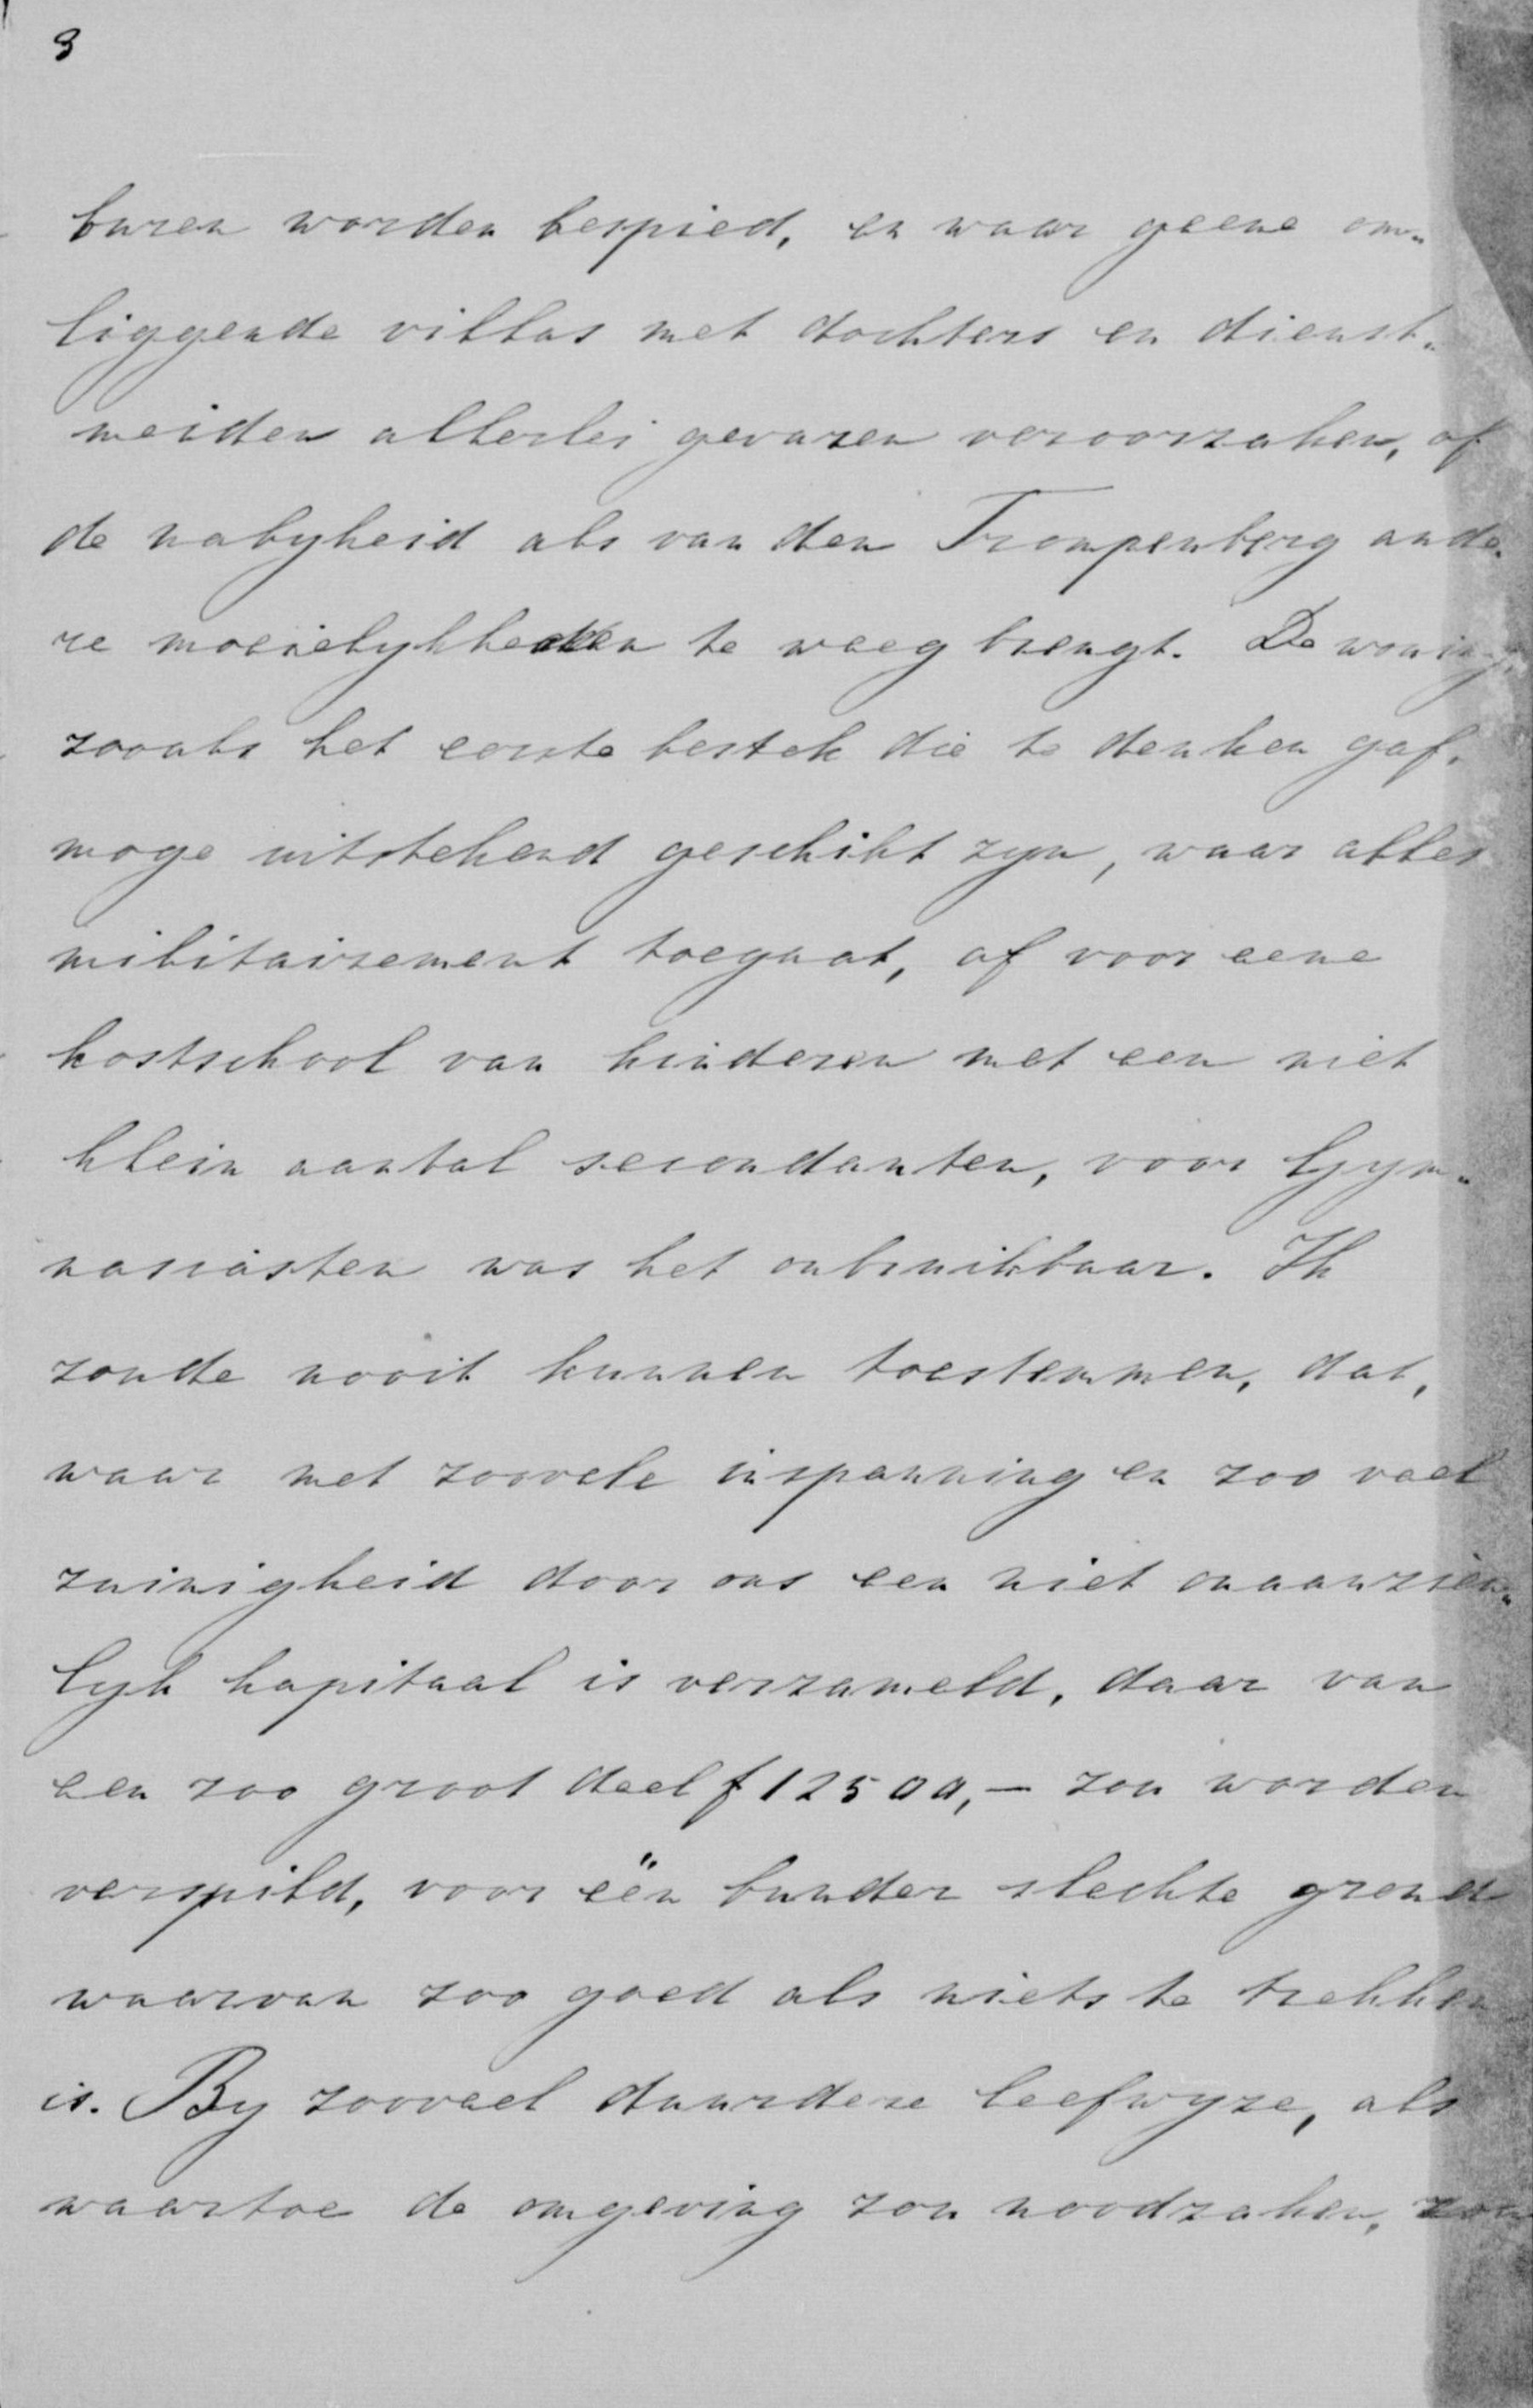 3
buren worden bespied, en waar geene om„
liggende villas met dochters en dienst„
meiden allerlei gevaren veroorzaken, of
de nabyheid als van den Trompenberg ande„
re moeielykheden te weeg brengt. De woning,
zooals het eerste bestek die te denken gaf,
moge uitstekend geschikt zyn, waar alles
militairement toegaat, of voor eene
kostschool van kinderen met een niet
klein aantal secondanten, voor Gym„
nasiasten was het onbruikbaar. Ik
zoude nooit kunnen toestemmen, dat,
waar met zoovele inspanning en zoo veel
zuinigheid door ons een niet onaanzien„
lyk kapitaal is verzameld, daar van
een zoo groot deel f 12500,— zou worden
verspild, voor één bunder slechte grond
waarvan zoo goed als niets te trekken
is. By zooveel duurdere leefwyze, als
waartoe de omgeving zou noodzaken, zou